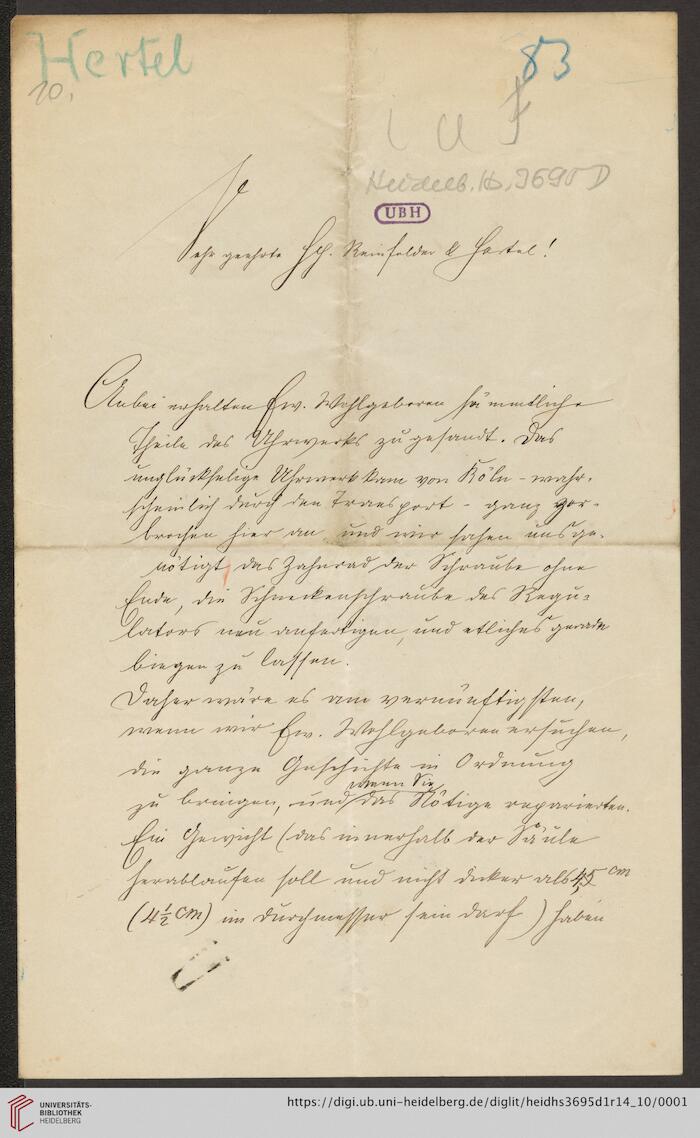 Hertel
83
10.
Heidelb. Hs. 3695 D
UBH
Sehr geehrte HH. Reinfelder & Hertel!
Anbei erhalten Ew. Wohlgeboren sämmtliche
Theile des Uhrwerks zugesandt. Das
unglückselige Uhrwerk kam von Köln - wahr-
scheinlich durch den Transport - ganz zer-
brochen hier an und wir sahen uns ge-
nötigt das Zahnrad der Schraube ohne
Ende, die Schneckenschraube des Regu-
lators neu anfertigen, und etliches gerade
biegen zu lassen.
Daher wäre es am vernünftigsten,
wenn wir Ew. Wohlgeboren ersuchen,
die ganze Geschichte in Ordnung
wenn Sie
zu bringen, und das Nötige reparierten.
Ein Gewicht (das innerhalb der Säule
herablaufen soll und nicht dicker als 4,5 cm
(4 1/2 cm) im Durchmesser sein darf) haben
UNIVERSITÄTS-
BIBLIOTHEK
HEIDELBERG
https://digi.ub.uni-heidelberg.de/diglit/heidhs3695d1r14_10/0001